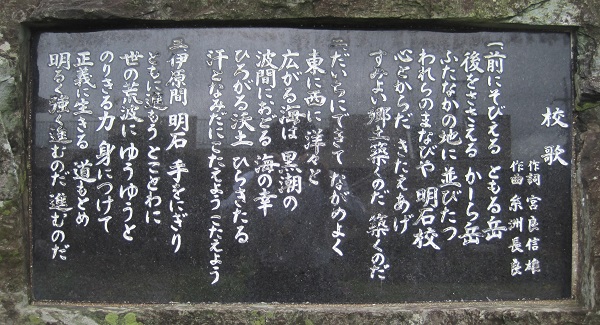 校歌
作詞 宮良信雄
作曲 糸洲長良
一、前にそびえる ともる岳
後をささえる かーら岳
ふたなかの地に 並びたつ
われらのまなびや 明石校
心とからだ きたえあげ
すみよい郷土 築くのだ 築くのだ
二、だいちにできて ながめよく
東に西に 洋々と
広がる海は 黒潮の
波間におどる 海の幸
ひろがる沃土 ひらきたる
汗となみだに こたえよう こたえよう
三、伊原間 明石 手をにぎり
ともに進もう とことわに
世の荒波に ゆうゆうと
のりきる力 身につけて
正義に生きる 道もとめ
明るく強く進むのだ 進むのだ